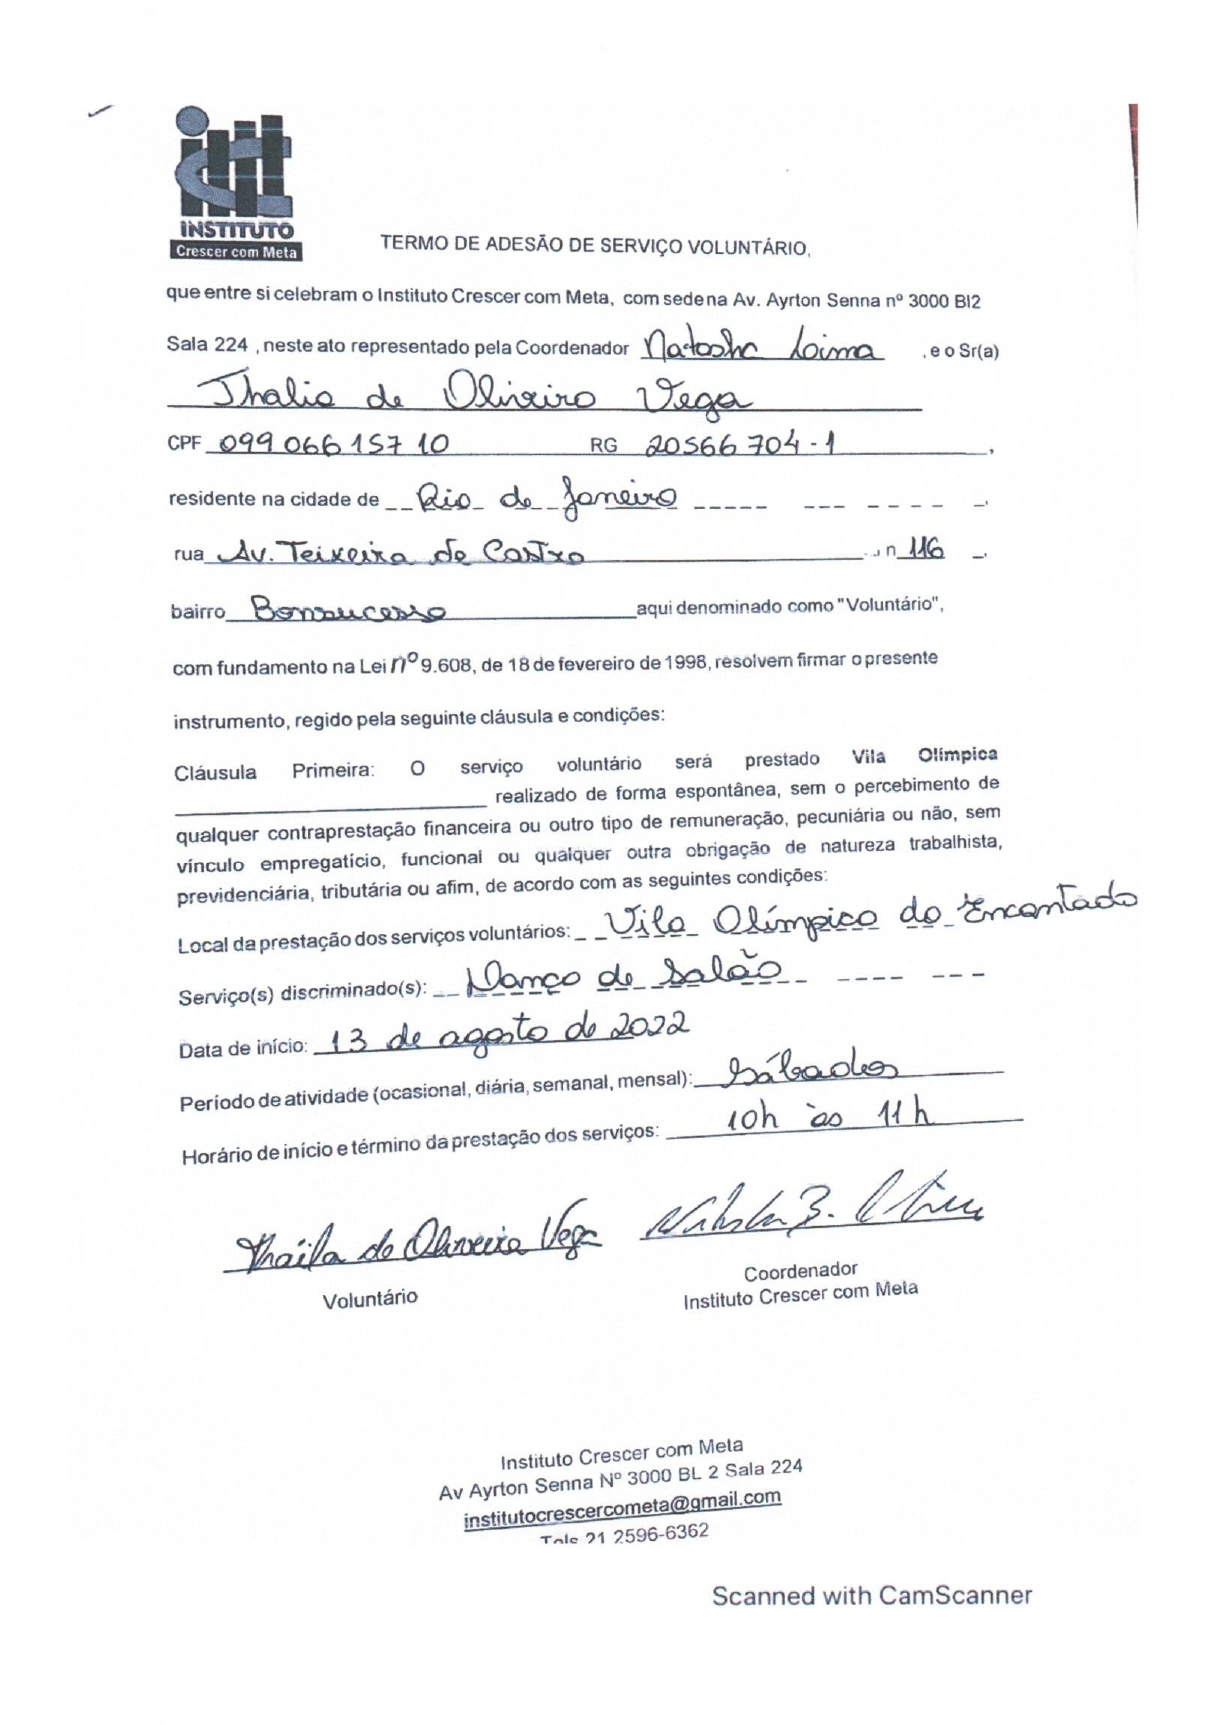 INSTITUTO
Crescer com Meta
TERMO DE ADESÃO DE SERVIÇO VOLUNTÁRIO,
que entre si celebram o Instituto Crescer com Meta, com sede na Av. Ayrton Senna nº 3000 Bl2
Sala 224 , neste ato representado pela Coordenador Natasha Lima , e o Sr(a)
Thalia de Oliveira Vega
CPF 099 066 157 10 RG 20566 704-1 ,
residente na cidade de Rio de Janeiro
rua Av. Teixeira de Castro , n 116
bairro Bonsucesso aqui denominado como "Voluntário",
com fundamento na Lei nº 9.608, de 18 de fevereiro de 1998, resolvem firmar o presente
instrumento, regido pela seguinte cláusula e condições:
Cláusula Primeira: O serviço voluntário será prestado Vila Olímpica
realizado de forma espontânea, sem o percebimento de
qualquer contraprestação financeira ou outro tipo de remuneração, pecuniária ou não, sem
vínculo empregatício, funcional ou qualquer outra obrigação de natureza trabalhista,
previdenciária, tributária ou afim, de acordo com as seguintes condições:
Local da prestação dos serviços voluntários: Vila Olímpica do Encantado
Serviço(s) discriminado(s): Dança de Salão
Data de início: 13 de agosto de 2022
Período de atividade (ocasional, diária, semanal, mensal): Sábados
Horário de início e término da prestação dos serviços: 10h às 11h
Voluntário
de Oliveira Vega
Coordenador
Instituto Crescer com Meta
Instituto Crescer com Meta
Av Ayrton Senna Nº 3000 BL 2 Sala 224
institutocrescercometa@gmail.com
Tels 21 2596-6362
Scanned with CamScanner